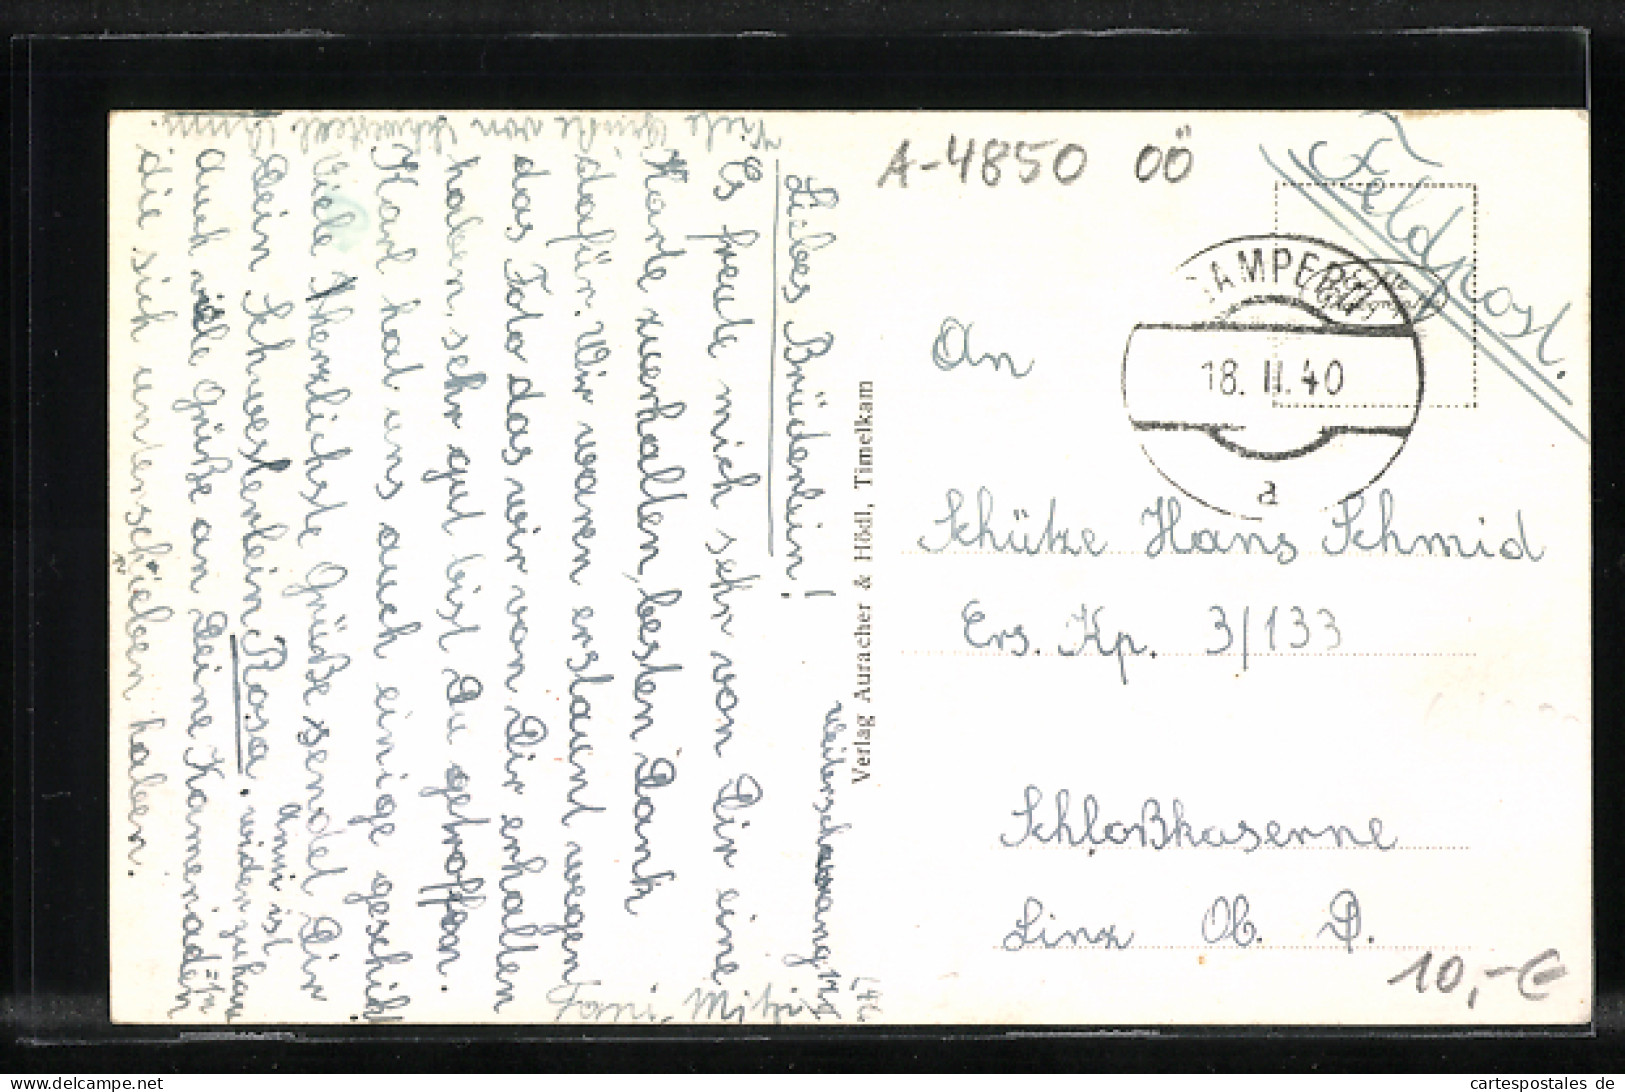 A-4850 OÖ
Feldpost.
GAMPERN
18. II. 40
a
An
Schütze Hans Schmid
Ers. Kp. 3/133
Schloßkaserne
Linz Ob. D.
10,-€
Verlag Auracher & Hödl, Timelkam
Liebes Brüderlein!
Es freute mich sehr von Dir eine
Karte zuerhalten, besten Dank
dafür. Wir waren erstaunt wegen
das Foto das wir von Dir erhalten
haben, sehr gut bist Du getroffen.
Karl hat uns auch einige geschikt
Viele herzlichste Grüße sendet Dir
Dein Schwesterlein Rosa.
Anni ist
wider zuhau
Auch viele Grüße an Deine Kameraden
die sich unterschrieben haben.
Viele Grüße von Schwesterl
Fani Mitzi
www.cartespostales.de